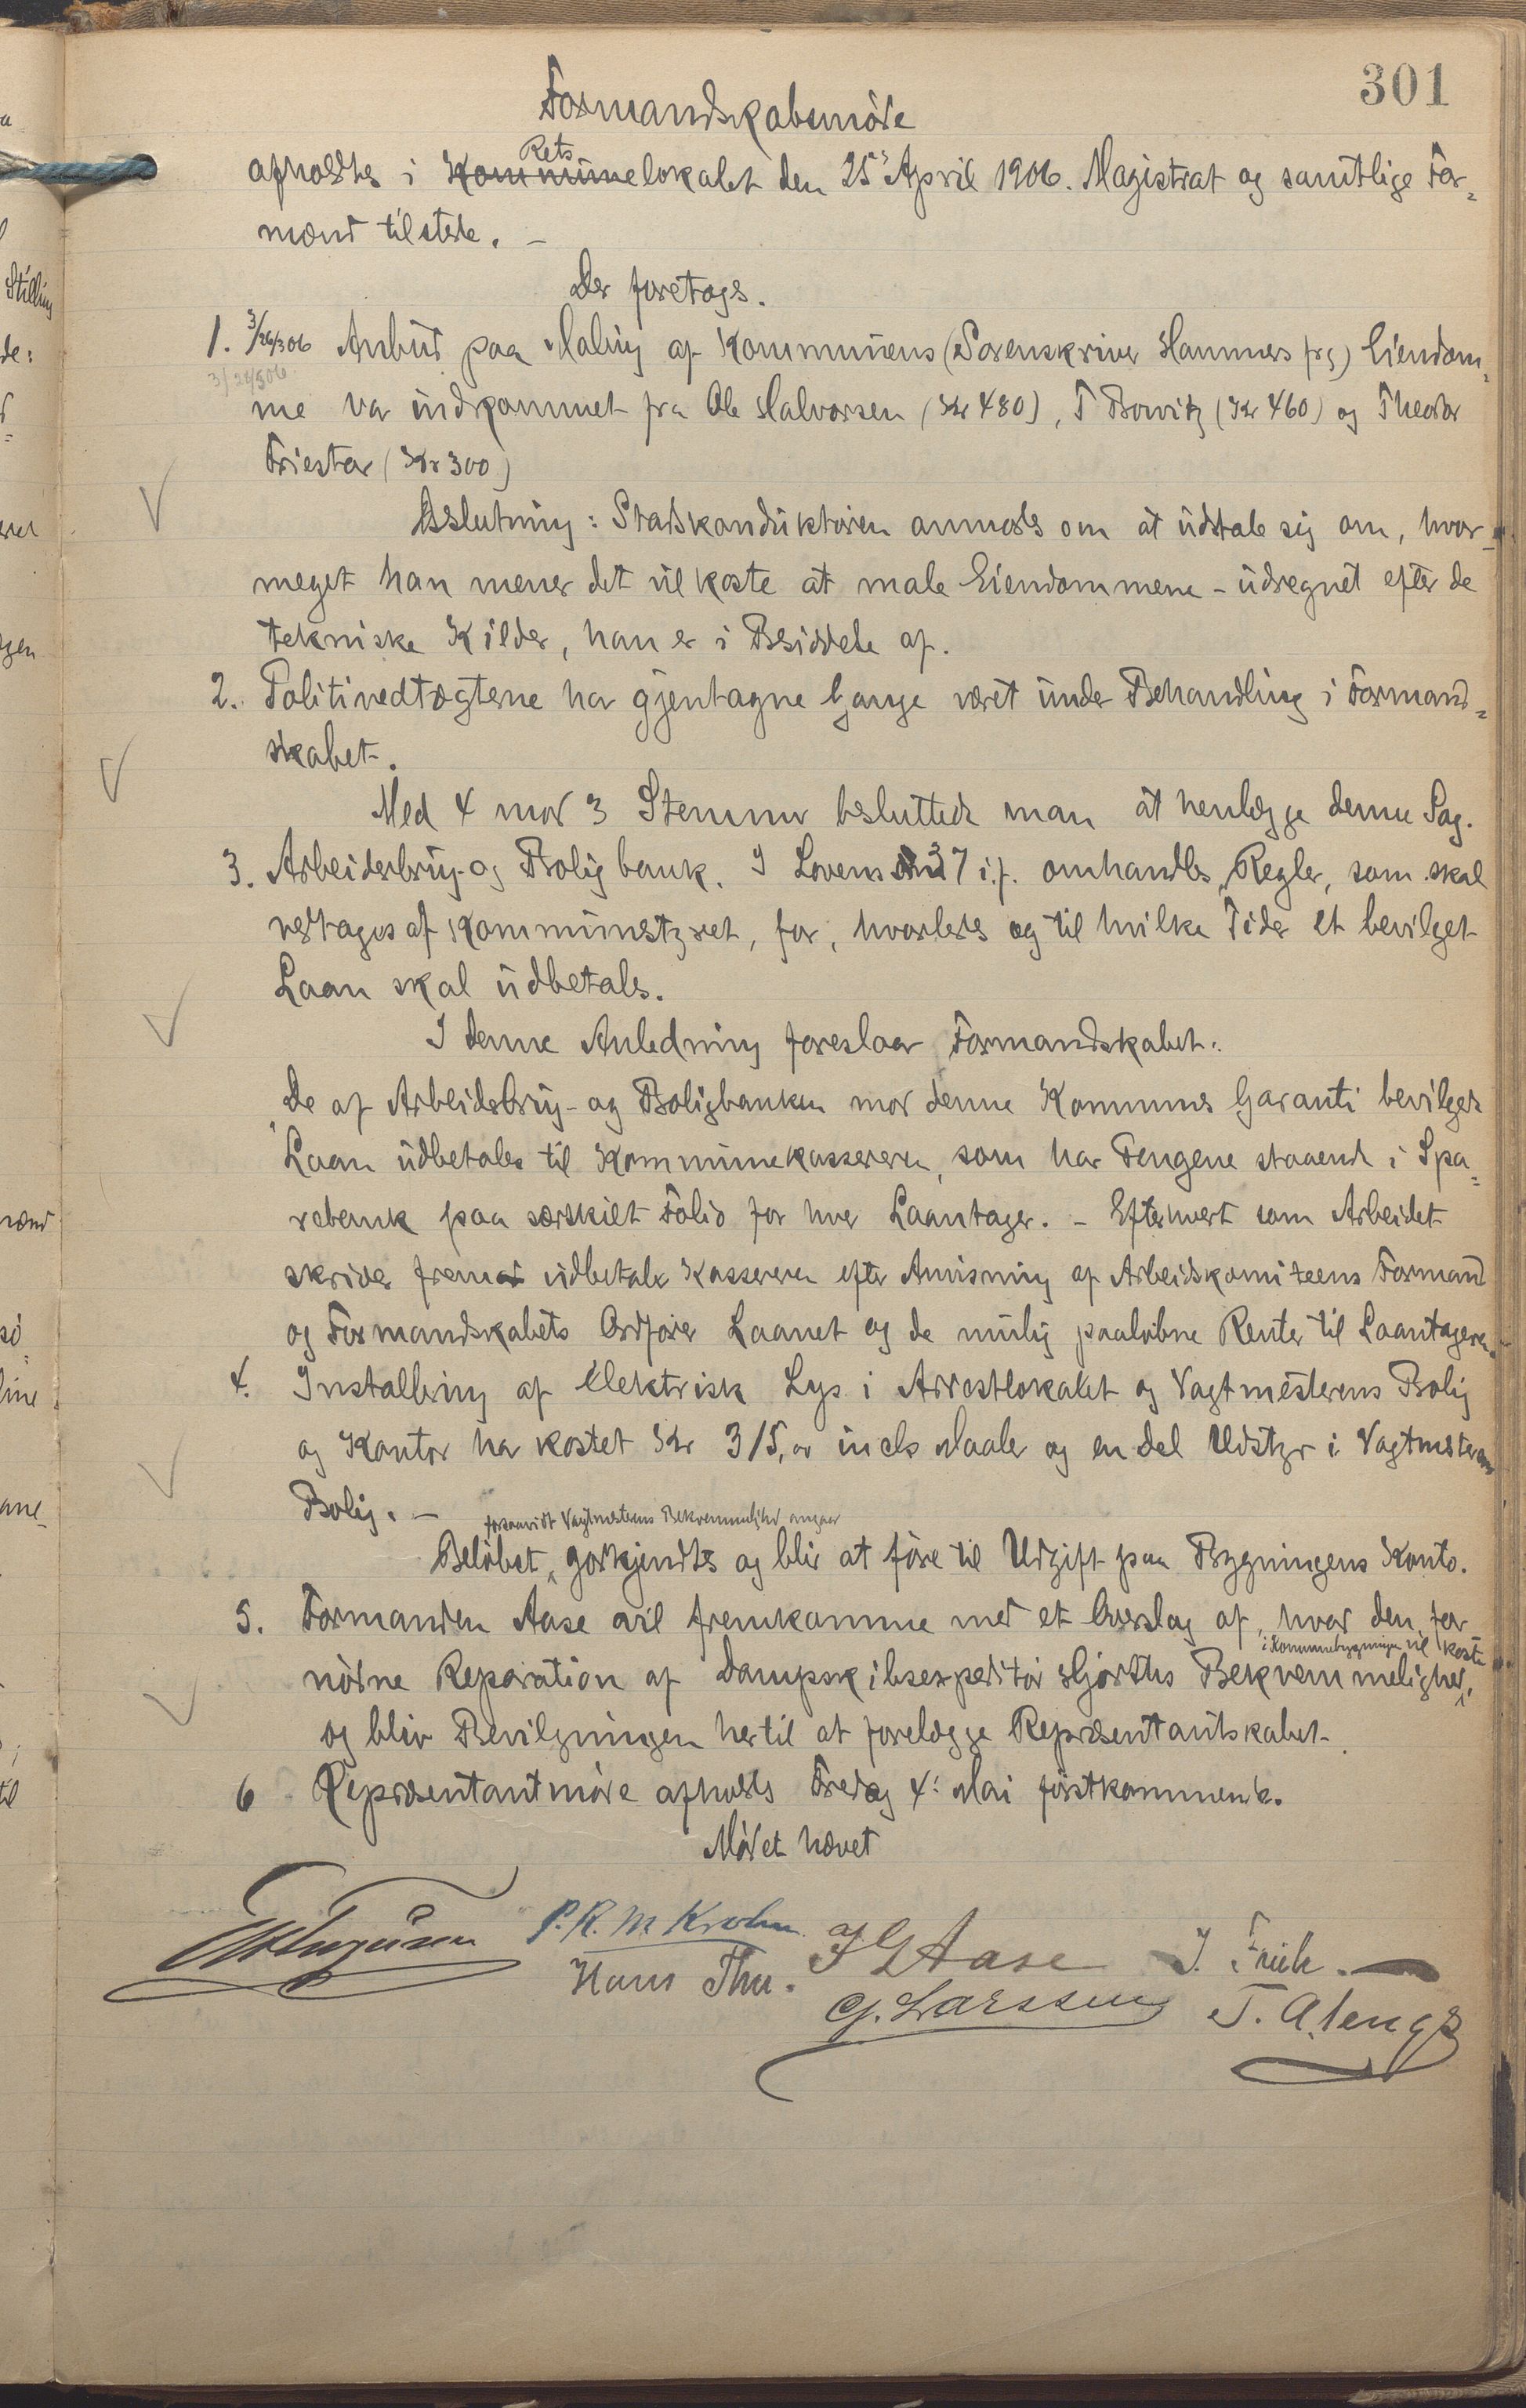 301
Formandskabsmøde
afholdtes i Kommune Rets lokalet den 25' April 1906. Magistrat og samtlige For-
mænd tilstede. -
Der foretoges.
1. 3/26/306 Anbud paa Maling af Kommunens (Sorenskriver Hammers frg) Eiendom-
3/26/306
me var indkommet fra Ole Halvorsen (Kr 480), T Bowitz (Kr 460) og Theodor
Friestad (Kr 300)
Beslutning: Stadskonduktøren anmodes om at udtale sig om, hvor-
meget han mener det vil koste at male Eiendommene - udregnet efter de
tekniske Kilder, han er i Besiddelse af.
2. Politivedtægterne har gjentagne Gange været under Behandling i Formand-
skabet.
Med 4 mod 3 Stemmer besluttede man at henlægge denne Sag.
3. Arbeiderbrug- og Boligbank. I Lovens 37 i.f. omhandles "Regler, som skal
vedtages af Kommunestyret, for, hvorledes og til hvilke Tider et bevilget
Laan skal udbetales.
I denne Anledning foreslaar Formandskabet:
"De af Arbeiderbrug- og Boligbanken mod denne Kommunes Garanti bevilgede
Laan udbetales til Kommunekassereren, som har Pengene staaende i Spa-
rebank paa særskilt Folio for hver Laantager. - Efterhvert som Arbeidet
skrider frem udbetaler Kassereren efter Anvisning af Arbeidskomiteens Formand
og Formandskabets Ordfører Laanet og de mulig paaløbne Renter til Laantageren."
4. Installering af elektrisk Lys i Arrestlokalet og Vagtmesterens Bolig
og Kontor har kostet Kr 315, incls Maaler og en del Udstyr i Vagtmesterens
Bolig. -
forsaavidt Vagtmesterens Bekvemmelighed angaar
Beløbet godkjendtes og blir at føre til Udgift paa Bygningens Konto.
5. Formanden Aase vil fremkomme med et Overslag af, hvad den for-
i Kommunebygningen vil koste
nødne Reparation af Dampskibsexpeditør Hjorths Bekvemmelighed,
og bliv Bevilgningen hertil at forelægge Repræsentantskabet.
6 Repræsentantmøde afholdes Fredag 4: Mai førstkommende.
Mødet hævet
P. R. M Krohn. I G Aase J. Friele.
Hans Thu. G. Larssen T. A. Tengs